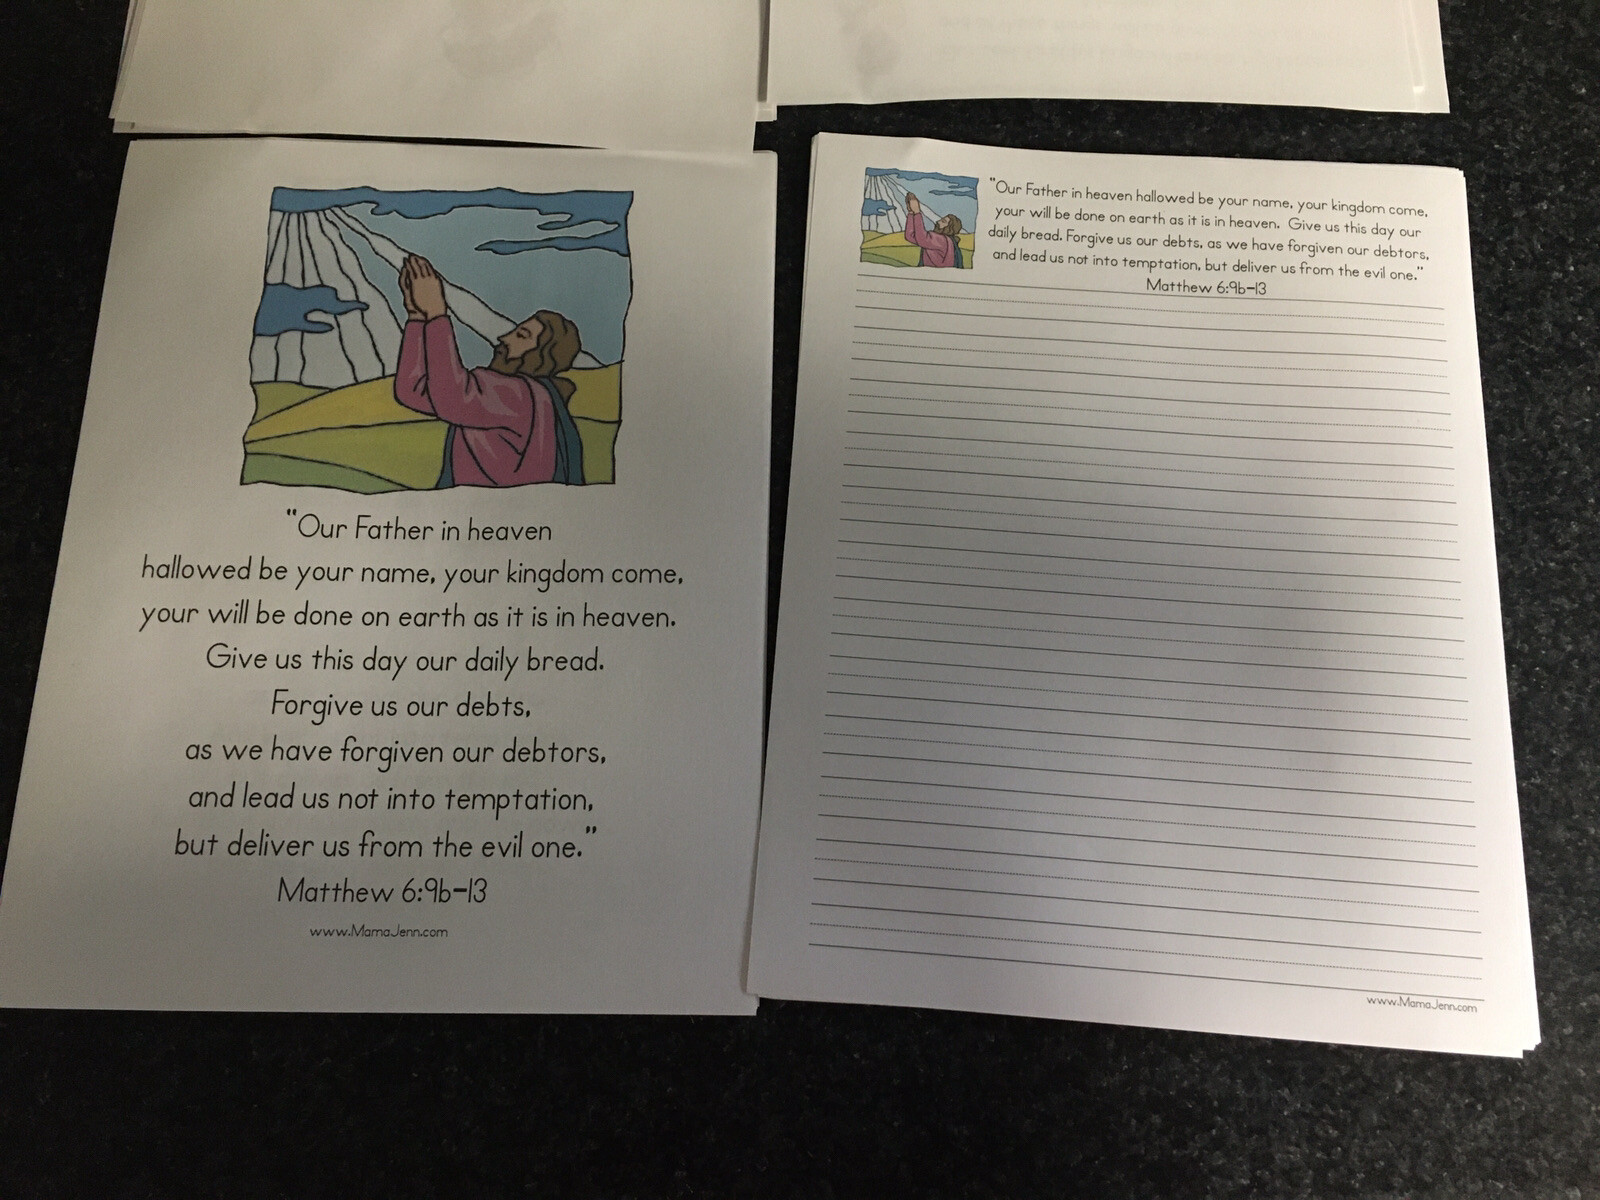 "Our Father in heaven
hallowed be your name, your kingdom come,
your will be done on earth as it is in heaven.
Give us this day our daily bread.
Forgive us our debts,
as we have forgiven our debtors,
and lead us not into temptation,
but deliver us from the evil one."
Matthew 6:9b-13
www.MamaJenn.com
"Our Father in heaven hallowed be your name, your kingdom come,
your will be done on earth as it is in heaven. Give us this day our
daily bread. Forgive us our debts, as we have forgiven our debtors,
and lead us not into temptation, but deliver us from the evil one."
Matthew 6:9b-13
www.MamaJenn.com